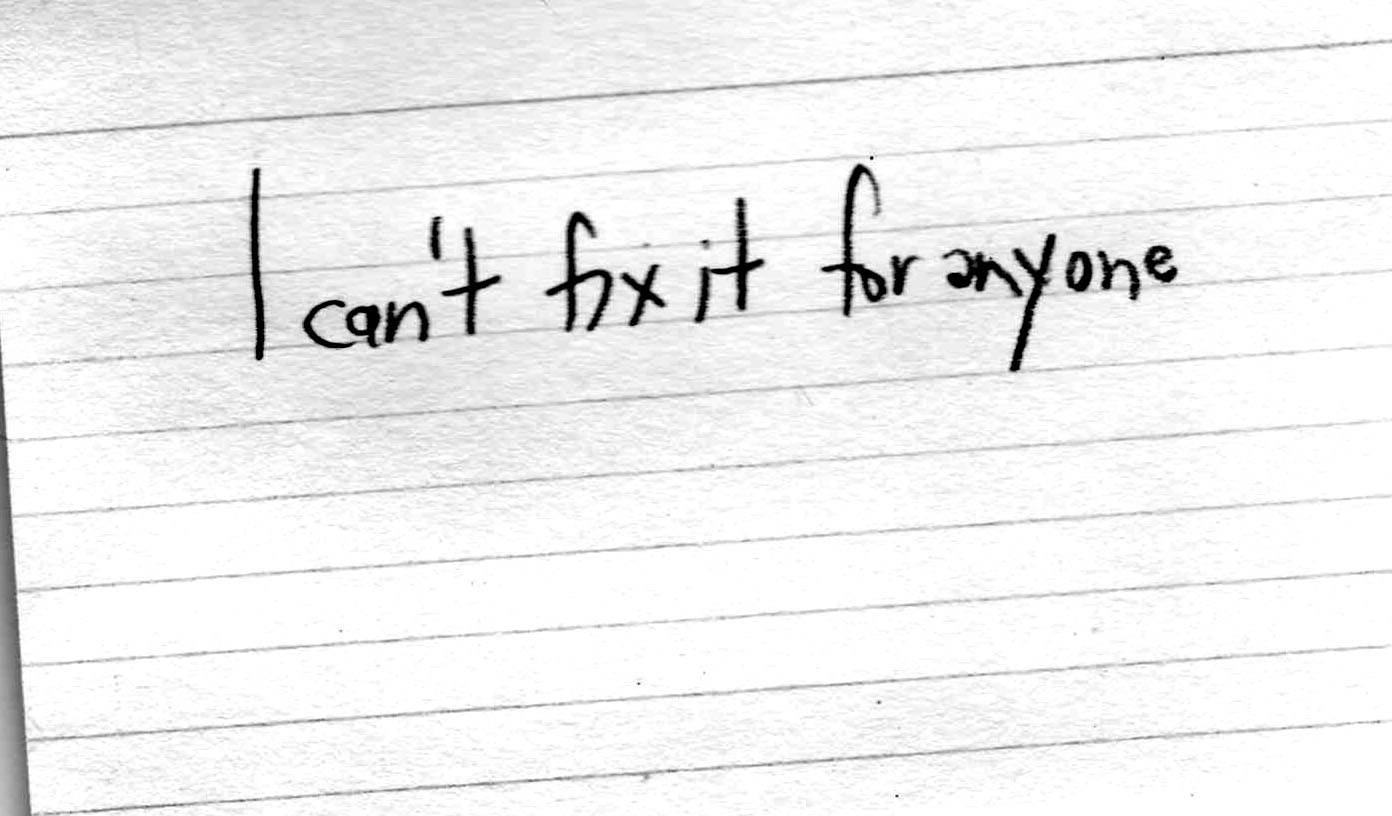 I can't fix it for anyone